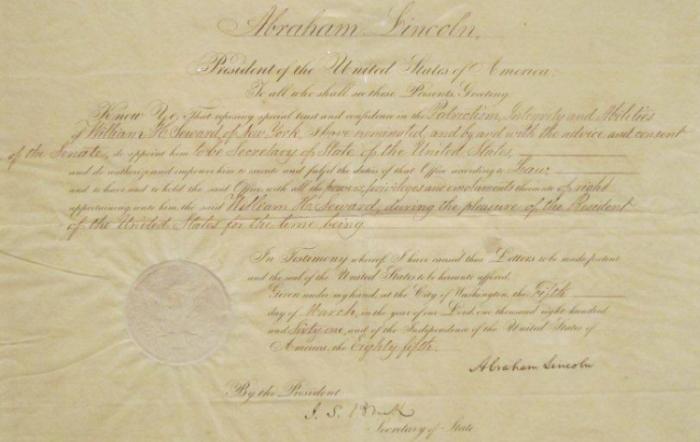 Abraham Lincoln,
President of the United States of America.
To all who shall see these Presents, Greeting
Know Ye, That reposing special trust and confidence in the Patriotism, Integrity and Abilities
of William H. Seward, of New York, I have nominated, and by and with the advice and consent
of the Senate, do appoint him to be Secretary of State of the United States,
and do authorize and empower him to execute and fulfil the duties of that Office according to Law;
and to have and to hold the said Office, with all the powers, privileges and emoluments thereunto of right
appertaining unto him the said William H. Seward, during the pleasure of the President
of the United States for the time being.
In Testimony whereof, I have caused these Letters to be made patent
and the seal of the United States to be hereunto affixed.
Given under my hand, at the City of Washington, the Fifth
day of March, in the year of our Lord, one thousand eight hundred
and Sixty one, and of the Independence of the United States of
America, the Eighty fifth.
Abraham Lincoln
By the President
J. S.
Secretary of State